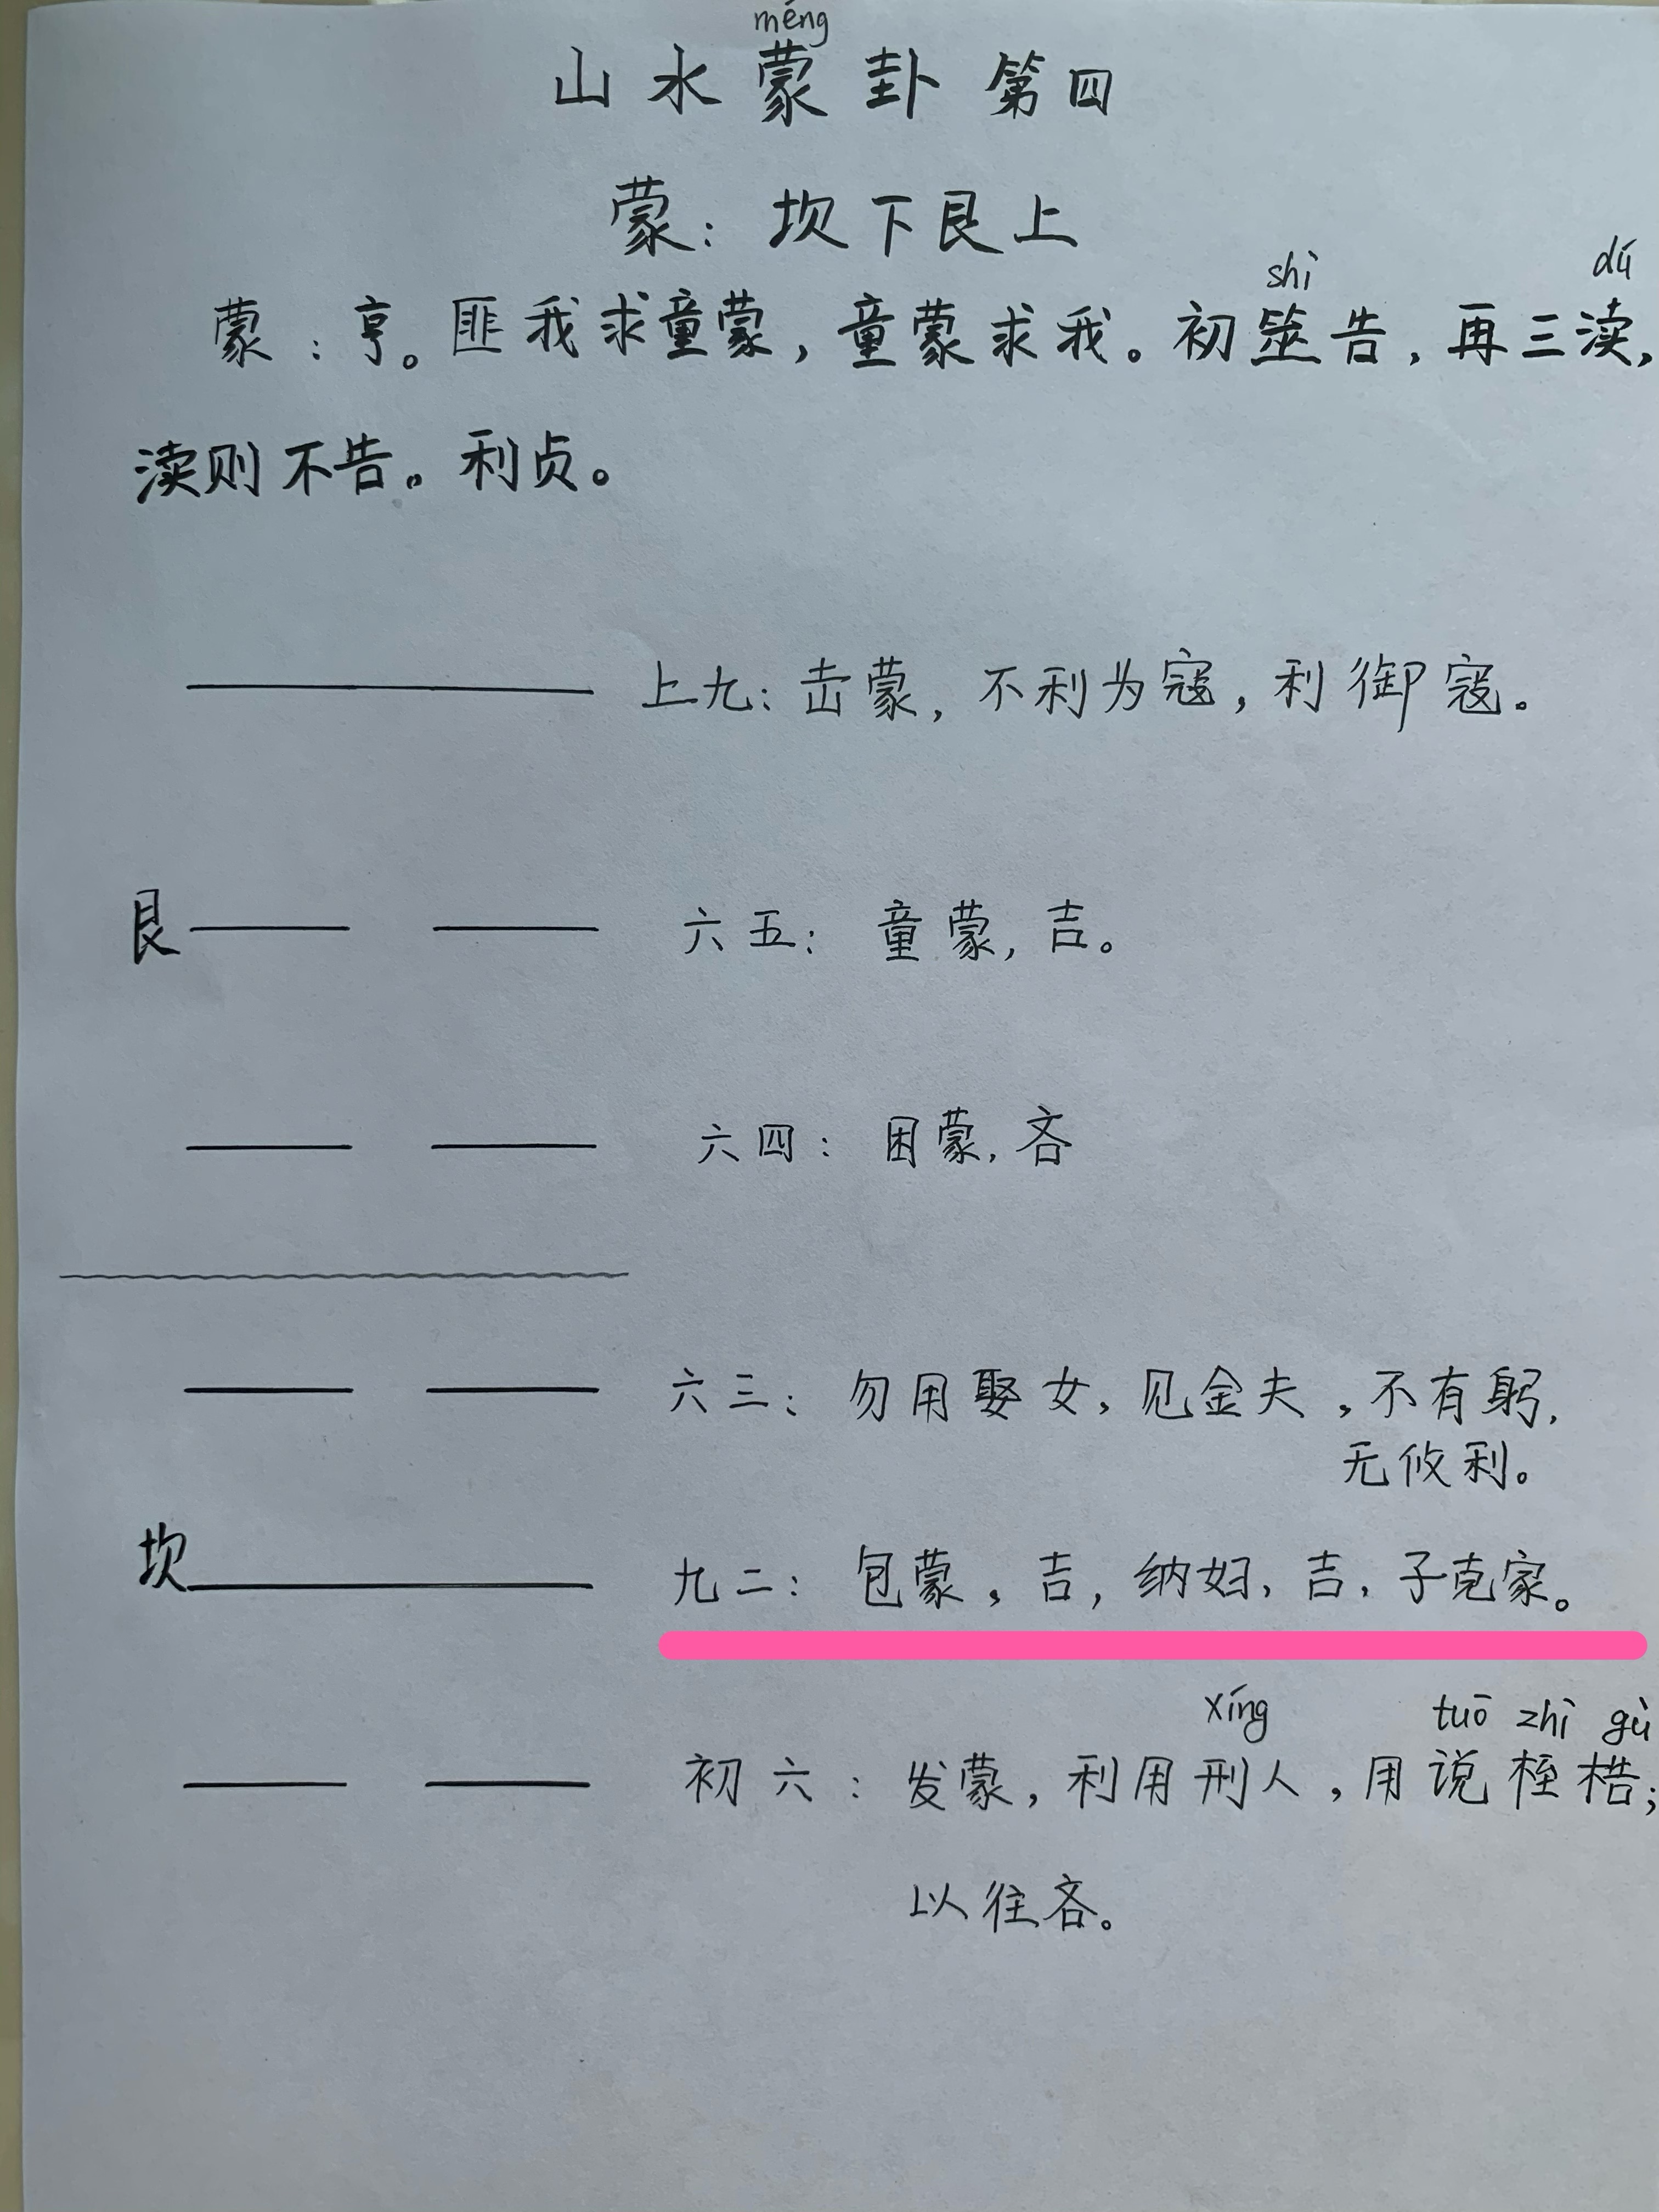 méng
山水蒙卦第四
蒙：坎下艮上
shì dú
蒙：亨。匪我求童蒙，童蒙求我。初筮告，再三渎，
渎则不告。利贞。
上九：击蒙，不利为寇，利御寇。
艮 六五：童蒙，吉。
六四：困蒙，吝
六三：勿用娶女，见金夫，不有躬，
无攸利。
坎 九二：包蒙，吉，纳妇，吉，子克家。
xíng tuō zhì gù
初六：发蒙，利用刑人，用说桎梏；
以往吝。